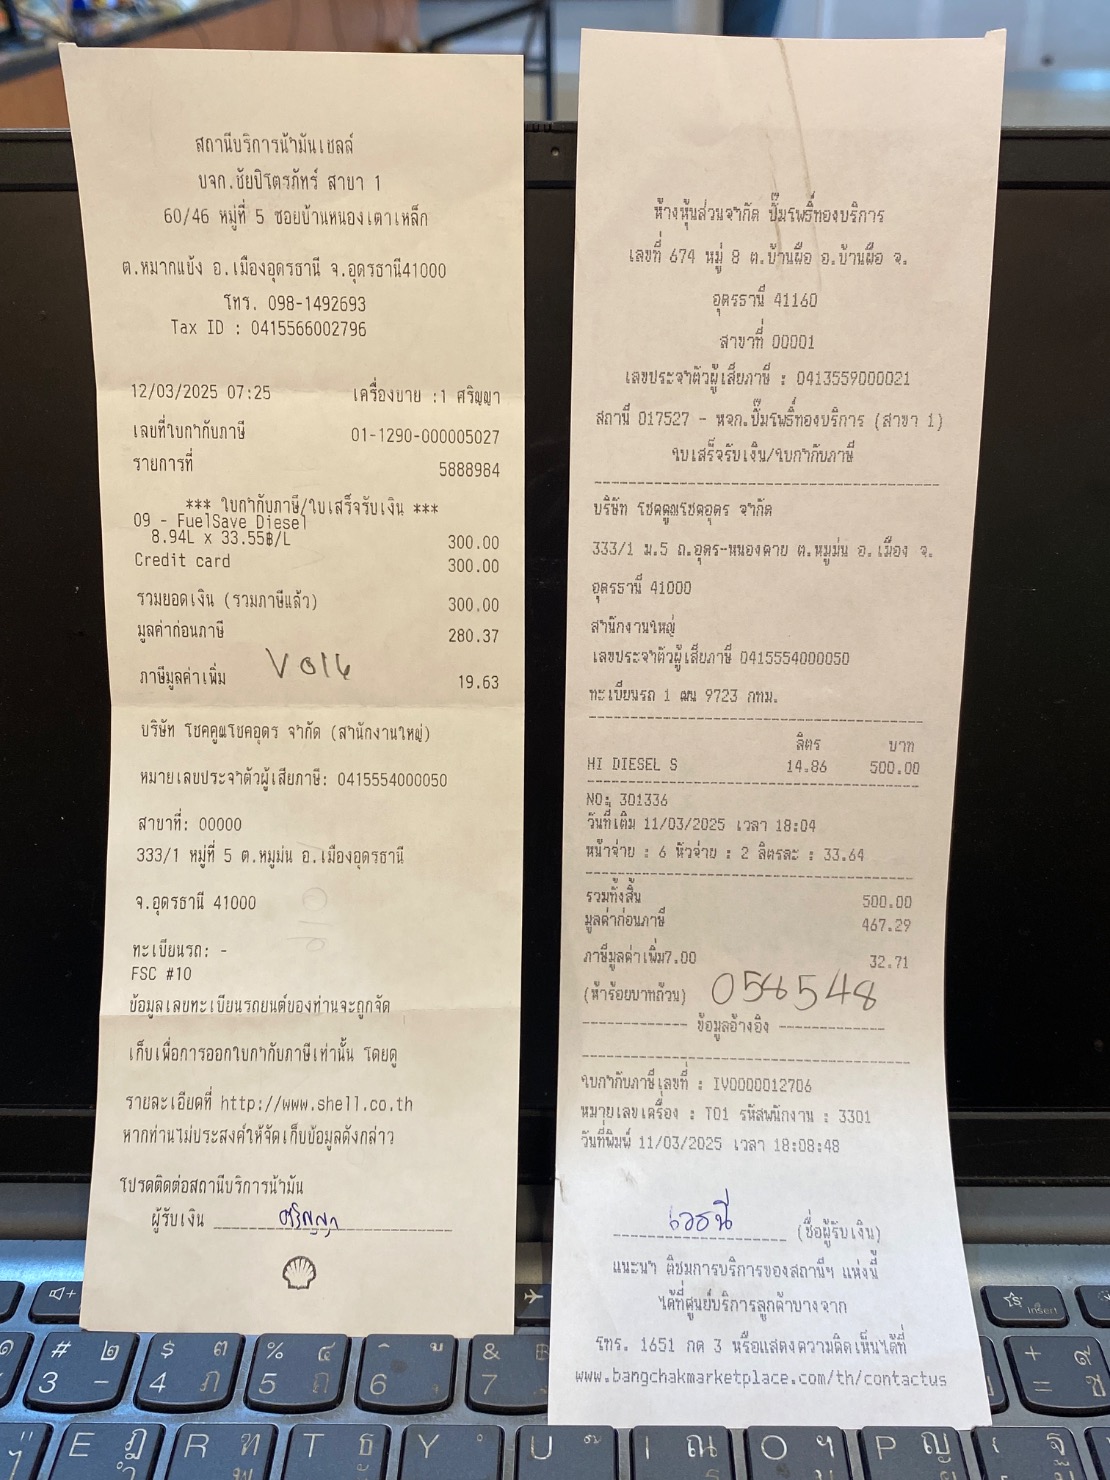 สถานีบริการน้ำมันเชลล์
บจก.ชัยปิโตรภัทร์ สาขา 1
60/46 หมู่ที่ 5 ซอยบ้านหนองเตาเหล็ก
ต.หมากแข้ง อ.เมืองอุดรธานี จ.อุดรธานี41000
โทร. 098-1492693
Tax ID : 0415566002796
12/03/2025 07:25 เครื่องขาย :1 ศริญญา
เลขที่ใบกำกับภาษี 01-1290-000005027
รายการที่ 5888984
*** ใบกำกับภาษี/ใบเสร็จรับเงิน ***
09 - FuelSave Diesel
8.94L x 33.55฿/L 300.00
Credit card 300.00
รวมยอดเงิน (รวมภาษีแล้ว) 300.00
มูลค่าก่อนภาษี 280.37
ภาษีมูลค่าเพิ่ม 19.63
บริษัท โชคคูณโชคอุดร จำกัด (สำนักงานใหญ่)
หมายเลขประจำตัวผู้เสียภาษี: 0415554000050
สาขาที่: 00000
333/1 หมู่ที่ 5 ต.หมูม่น อ.เมืองอุดรธานี
จ.อุดรธานี 41000
ทะเบียนรถ: -
FSC #10
ข้อมูลเลขทะเบียนรถยนต์ของท่านจะถูกจัด
เก็บเพื่อการออกใบกำกับภาษีเท่านั้น โดยดู
รายละเอียดที่ http://www.shell.co.th
หากท่านไม่ประสงค์ให้จัดเก็บข้อมูลดังกล่าว
โปรดติดต่อสถานีบริการน้ำมัน
ผู้รับเงิน ศริญญา
ห้างหุ้นส่วนจำกัด ปั๊มโพธิ์ทองบริการ
เลขที่ 674 หมู่ 8 ต.บ้านผือ อ.บ้านผือ จ.
อุดรธานี 41160
สาขาที่ 00001
เลขประจำตัวผู้เสียภาษี : 0413559000021
สถานี 017527 - หจก.ปั๊มโพธิ์ทองบริการ (สาขา 1)
ใบเสร็จรับเงิน/ใบกำกับภาษี
บริษัท โชคคูณโชคอุดร จำกัด
333/1 ม.5 ถ.อุดร-หนองคาย ต.หมูม่น อ.เมือง จ.
อุดรธานี 41000
สำนักงานใหญ่
เลขประจำตัวผู้เสียภาษี 0415554000050
ทะเบียนรถ 1 ฒน 9723 กทม.
ลิตร บาท
HI DIESEL S 14.86 500.00
NO: 301336
วันที่เติม 11/03/2025 เวลา 18:04
หน้าจ่าย : 6 หัวจ่าย : 2 ลิตรละ : 33.64
รวมทั้งสิ้น 500.00
มูลค่าก่อนภาษี 467.29
ภาษีมูลค่าเพิ่ม7.00 32.71
(ห้าร้อยบาทถ้วน) 058548
ข้อมูลอ้างอิง
ใบกำกับภาษีเลขที่ : IV0000012706
หมายเลขเครื่อง : T01 รหัสพนักงาน : 3301
วันที่พิมพ์ 11/03/2025 เวลา 18:08:48
(ชื่อผู้รับเงิน)
แนะนำ ติชมการบริการของสถานีฯ แห่งนี้
ได้ที่ศูนย์บริการลูกค้าบางจาก
โทร. 1651 กด 3 หรือแสดงความคิดเห็นได้ที่
www.bangchakmarketplace.com/th/contactus